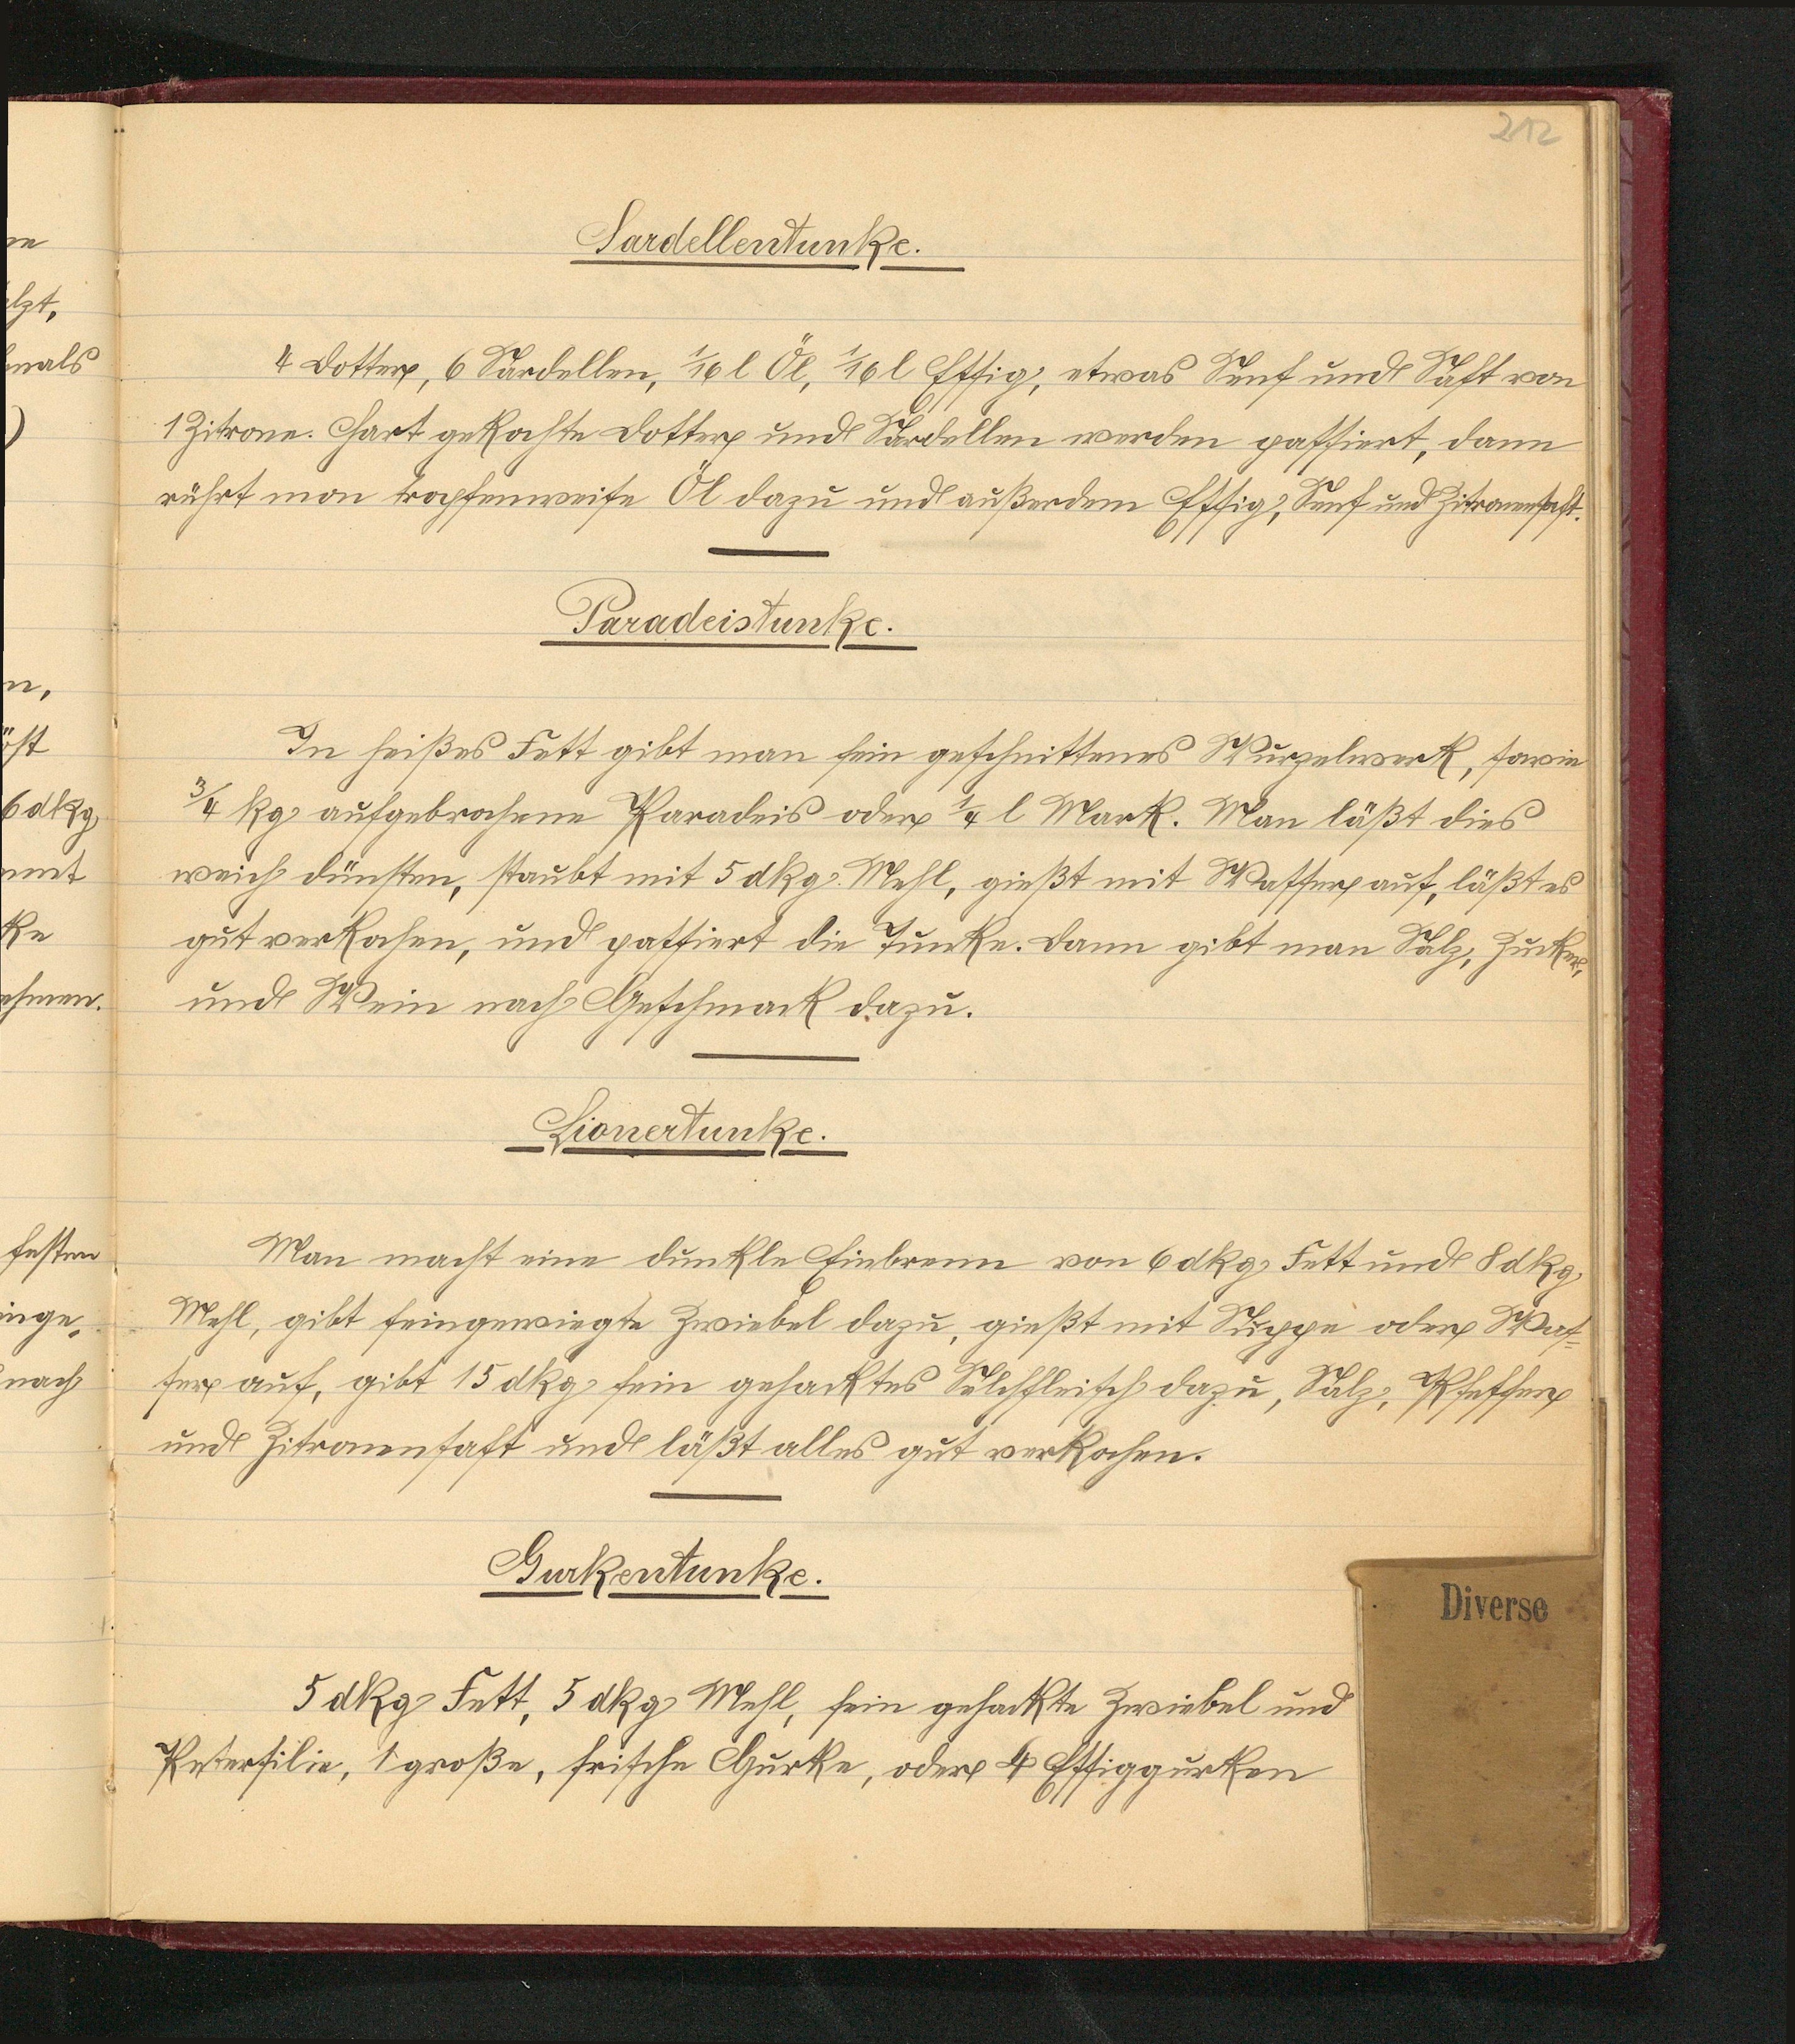 212
Sardellentunke.
4 Dotter, 6 Sardellen, 1/16 l Öl, 1/16 l Essig, etwas Senf und Saft von
1 Zitrone. Hart gekochte Dotter und Sardellen werden passiert, dann
rührt man tropfenweise Öl dazu und außerdem Essig, Senf und Zitronensaft.
Paradeistunke.
In heißes Fett gibt man fein geschnittenes Wurzelwerk, sowie
3/4 kg aufgebrochene Paradeis oder 1/4 l Mark. Man läßt dies
weich dünsten, staubt mit 5 dkg. Mehl, gießt mit Wasser auf, läßt es
gut verkochen, und passiert die Tunke. Dann gibt man Salz, Zucker,
und Wein nach Geschmack dazu.
Lionertunke.
Man macht eine dunkle Einbrenn von 6 dkg Fett und 8 dkg
Mehl, gibt feingewiegte Zwiebel dazu, gießt mit Suppe oder Was=
ser auf, gibt 15 dkg fein gehacktes Selchfleisch dazu, Salz, Pfeffer
und Zitronensaft und läßt alles gut verkochen.
Gurkentunke.
5 dkg Fett, 5 dkg Mehl, fein gehackte Zwiebel und
Petersilie, 1 große, frische Gurke, oder 4 Essiggurken
Diverse